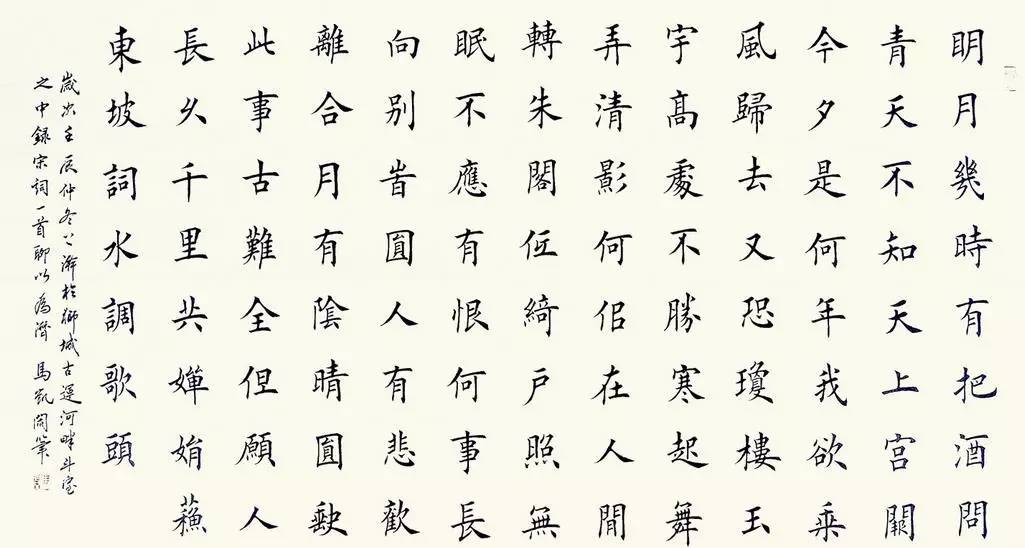 明月幾時有把酒問
青天不知天上宮闕
今夕是何年我欲乘
風歸去又恐瓊樓玉
宇高處不勝寒起舞
弄清影何佀在人間
轉朱閣低綺戶照無
眠不應有恨何事長
向别旹圓人有悲歡
離合月有陰晴圓缺
此事古難全但願人
長久千里共嬋娟蘓
東坡詞水調歌頭
歲次壬辰仲冬上澣於聊城古運河畔斗室
之中録宋詞一首聊以為濟 馬凱閑筆